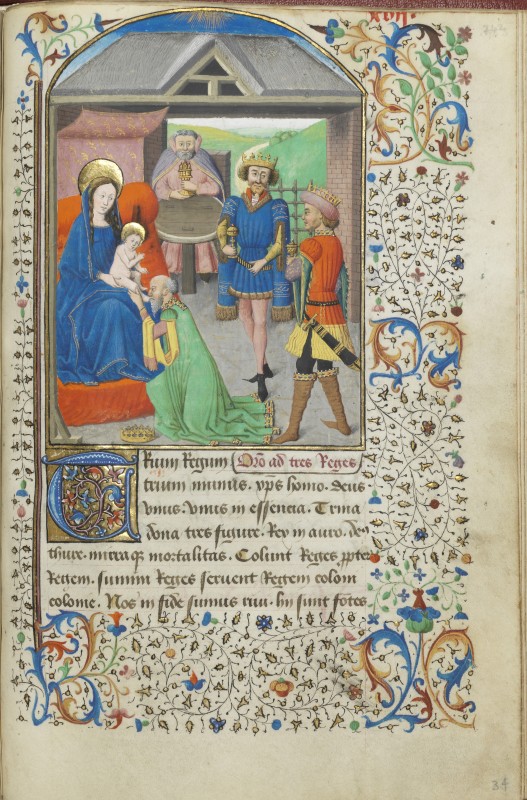 xviii
Trium Regum Oro ad tres Reges
trium munus. xps homo. deus
vnus. Vnus in essencia. Trina
dona tres figure. Rex in auro. deus
thure. mirraqz mortalitas. Colunt Reges ppter
Regem. summi Reges seruent Regem
colome. Nos in fide sumus riui. hii sunt fotes
34